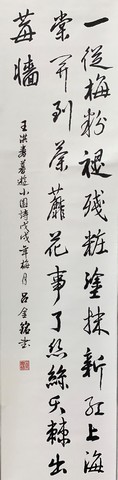 一從梅粉褪殘粧塗抹新紅上海
棠開到荼蘼花事了絲絲天棘出
莓墻
王淇春暮遊小園詩戊戌年梅月 呂金銘書